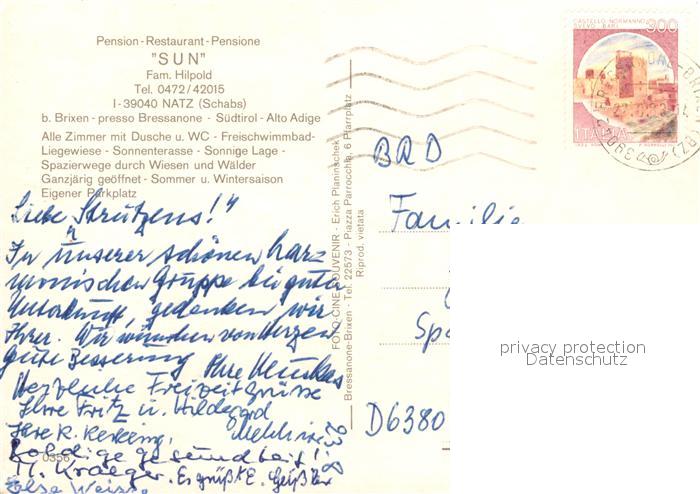 Pension-Restaurant-Pensione
"SUN"
Fam. Hilpold
Tel. 0472/42015
I-39040 NATZ (Schabs)
b. Brixen - presso Bressanone - Südtirol - Alto Adige
Alle Zimmer mit Dusche u. WC - Freischwimmbad-
Liegewiese - Sonnenterasse - Sonnige Lage -
Spazierwege durch Wiesen und Wälder
Ganzjärig geöffnet - Sommer u. Wintersaison
Eigener Parkplatz
Liebe Strützens!"
In unserer schönen harz
monischen Gruppe bei guter
Unterkunft, gedenken wir
Ihrer. Wir wünschen von Herzen
gute Besserung Ihre
Herzliche Freizeitgrüsse
Ihre Fritz u. Hildegard
Ihre R.
Baldige gesundheit!
H. Kraeger. Es grüßt E.
Else
0356
FOTO-CINE-SOUVENIR - Erich Planinschek
Bressanone-Brixen - Tel. 22573 - Piazza Parrocchia, 6 Pfarrplatz
Riprod. vietata
CASTELLO NORMANNO
SVEVO BARI
300
ITALIA
BRD
Familie
Sp
D6380
privacy protection
Datenschutz